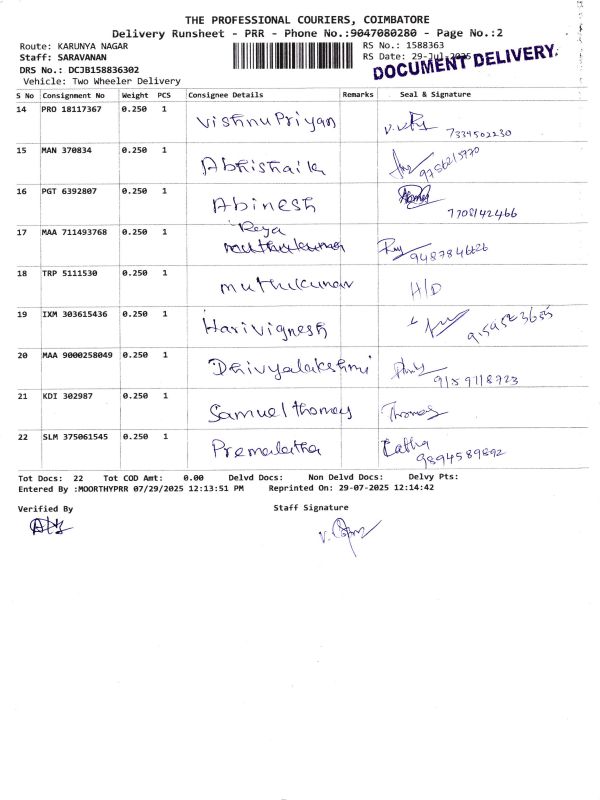 THE PROFESSIONAL COURIERS, COIMBATORE
Delivery Runsheet - PRR - Phone No.:9047080280 - Page No.:2
Route: KARUNYA NAGAR
RS No.: 1588363
Staff: SARAVANAN
RS Date: 29-Jul-2025
DRS No.: DCJB158836302
DOCUMENT DELIVERY.
Vehicle: Two Wheeler Delivery
S No Consignment No Weight PCS Consignee Details Remarks Seal & Signature
14 PRO 18117367 0.250 1 Vishnu Priyan
7334502230
15 MAN 370834 0.250 1 Abhishaik
9786215770
16 PGT 6392807 0.250 1 Abinesh
7708142466
17 MAA 711493768 0.250 1 Reya
9487846626
18 TRP 5111530 0.250 1 muthukumar H/D
19 IXM 303615436 0.250 1 Harivignesh
20 MAA 9000258049 0.250 1 Dhivyalakshmi
9159118723
21 KDI 302987 0.250 1 Samuel thomas Thomas
22 SLM 375061545 0.250 1 Premalatha Latha
9894589892
Tot Docs: 22 Tot COD Amt: 0.00 Delvd Docs: Non Delvd Docs: Delvy Pts:
Entered By :MOORTHYPRR 07/29/2025 12:13:51 PM Reprinted On: 29-07-2025 12:14:42
Verified By Staff Signature